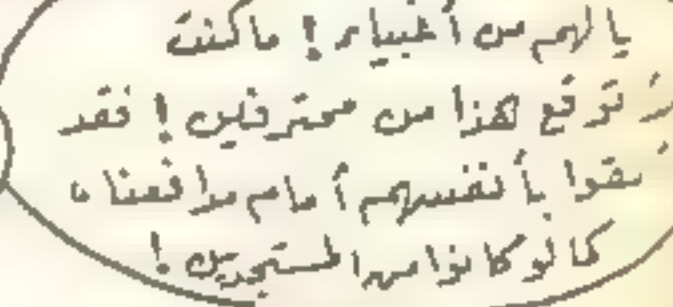 يا لهم من أغبياء ! ما كنت
توقع هذا من محترفين ! فقد
بأنفسهم أمام مدافعنا ،
كما لو كانوا من المستجدين !